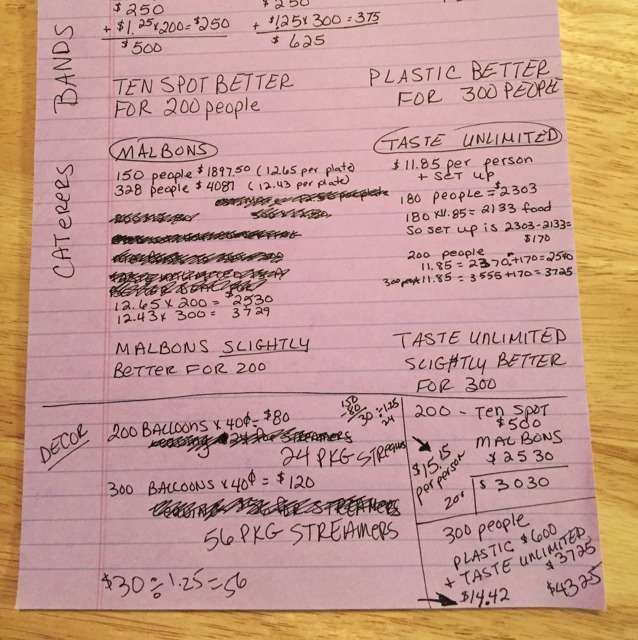 $250
+ $1.25 x 200 = $250
$500
$250
+ $1.25 x 300 = 375
$625
BANDS
TEN SPOT BETTER
FOR 200 people
PLASTIC BETTER
FOR 300 PEOPLE
CATERERS
MALBONS
150 people $1897.50 (12.65 per plate)
328 people $4087 (12.43 per plate)
12.65 x 200 = $2530
12.43 x 300 = 3729
MALBONS SLIGHTLY
BETTER FOR 200
TASTE UNLIMITED
$11.85 per person
+ SET UP
180 people = $2303
180 x 11.85 = 2133 food
So set up is 2303-2133=
$170
200 people
11.85 = 2370 + 170 = 2540
300 11.85 = 3555 + 170 = 3725
TASTE UNLIMITED
SLIGHTLY BETTER
FOR 300
DECOR
200 BALLOONS x 40¢ = $80
24 PKG STREAMS
300 BALLOONS x 40¢ = $120
56 PKG STREAMERS
$30 ÷ 1.25 = 56
200 - TEN SPOT
$500
MALBONS
$2530
$3030
$15.15
per person
300 people
PLASTIC $600
+ TASTE UNLIMITED
$3725
$4325
$14.42